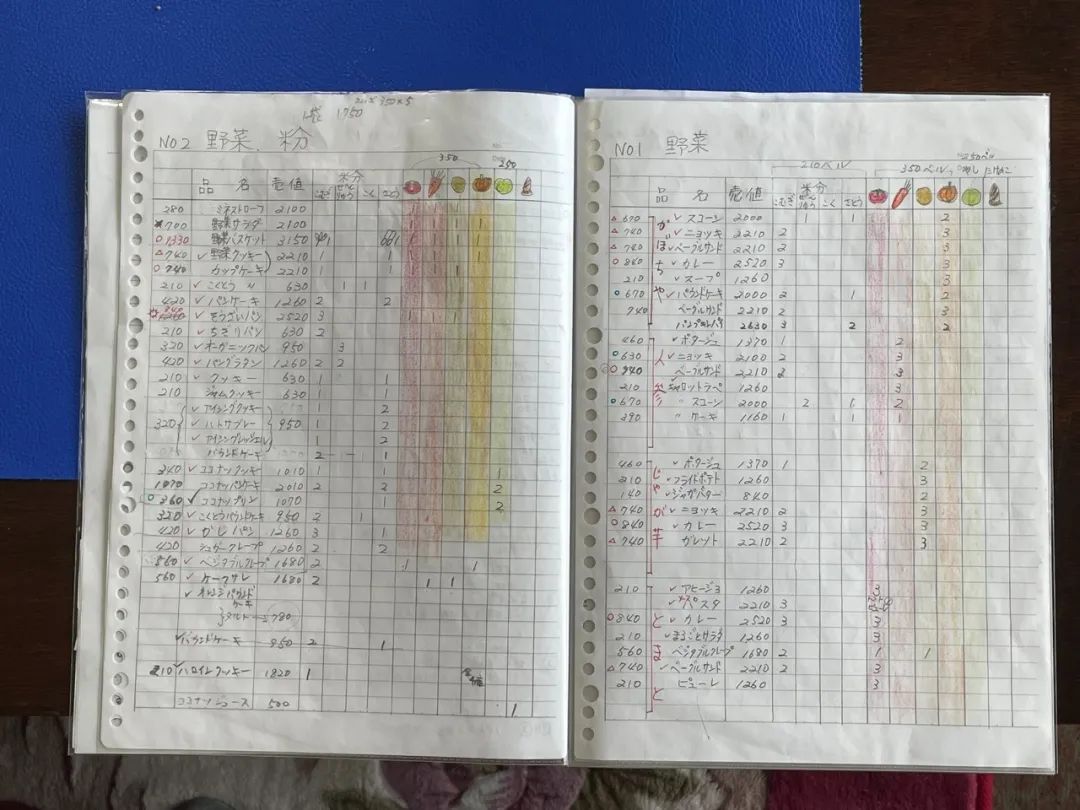 350×5
1750
No2 野菜. 粉
350
250
品 名 売値
米分
こむぎ
こく
さとう
280 ミネストローフ 2100
*700 野菜サラダ 2100 1 1 1 1
○1330 野菜バスケット 3150 1 1 1 1
△740 ✓野菜クッキー 2210 1 1 1 1 1 1
○740 カップケーキ 2210 1 1 1 1 1
210 ✓こくとう 〃 630 1 1
420 ✓パンケーキ 1260 2 2
✓そうざいパン 2520 3 1 1
210 ✓ちぎりパン 630 2
320 ✓オーガニックパン 950 3
420 ✓パングラタン 1260 2 2
210 ✓クッキー 630 1 1
210 ジャムクッキー 630 1 1
✓アイシングクッキー 1 2
320 ✓ハトサブレー 950 1 2
✓アイシングプレッシェル 1 2
パウンドケーキ 2 1
340 ✓ココナツクッキー 1010 1 1 1
1070 ココナツパンケーキ 2010 2 2 2
○360 ✓ココナップリン 1070 2
320 ✓こくとうパウンドケーキ 950 2 1
420 ✓かしパン 1260 3 1
420 シュガークレープ 1260 2 2
560 ✓ベジタブルクレープ 1680 2 1 1
560 ✓ケークサレ 1680 2 1 1
✓オレンジパウンド
ケーキ
タルト 780
✓パウンドケーキ 950 2 1
210 ✓ハロインクッキー 1820 1
ココナツジュース 500 1
No1 野菜
250ベル
210ベル
350ベル
品 名 売値
米分
こむぎ
こく
さとう
かぼちゃ
△670 ✓スコーン 2000 1 1 2
△740 ✓ニョッキ 2210 2 3
△740 ✓ベーグルサンド 2210 2 3
○840 ✓カレー 2520 3 3
210 ✓スープ 1260 3
○670 ✓パウンドケーキ 2000 2 1 2
740 ベーグルサンド 2210 2 3
2630 3 2 2
人参
460 ✓ポタージュ 1370 1 2
○630 ✓ニョッキ 2100 2 3
○940 ベーグルサンド 2210 2 3
210 キャロットラペ 1260 3
○670 〃 スコーン 2000 2 1 2
390 〃 ケーキ 1160 1 1 1
じゃが芋
460 ✓ポタージュ 1370 1 2
210 ✓フライドポテト 1260 3
140 ✓ジャガバター 840 2
△740 ✓ニョッキ 2210 2 3
○840 ✓カレー 2520 3 3
△740 ガレット 2210 2 3
とまと
210 ✓アヒージョ 1260 3
✓パスタ 2210 3
○840 ✓カレー 2520 3 3
210 ✓まるごとサラダ 1260 3
560 ベジタブルクレープ 1680 2 1 1
△740 ✓ベーグルサンド 2210 2 3
210 ピューレ 1260 3